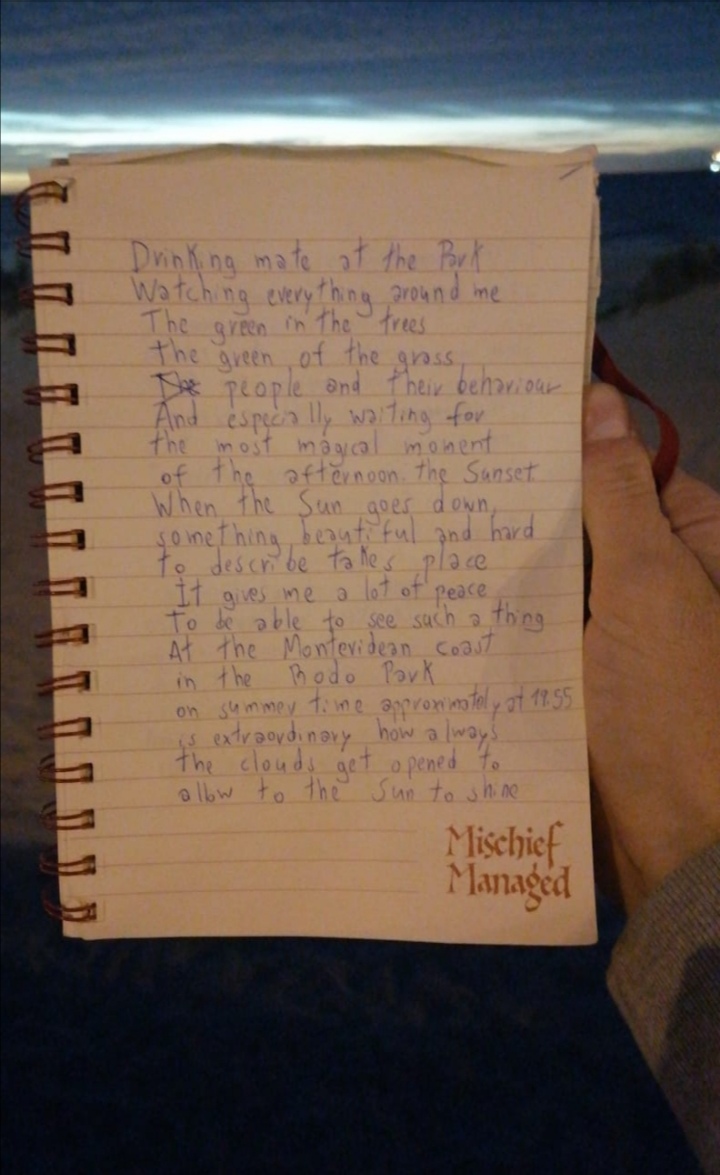 Drinking mate at the Park
Watching everything around me
The green in the trees
the green of the grass
people and their behaviour
And especially waiting for
the most magical moment
of the afternoon. the Sunset
When the Sun goes down,
something beautiful and hard
to describe takes place
It gives me a lot of peace
To be able to see such a thing
At the Montevidean coast
in the Rodo Park
on summer time approximately at 19:55
is extraordinary how always
the clouds get opened to
allow to the Sun to shine
Mischief
Managed